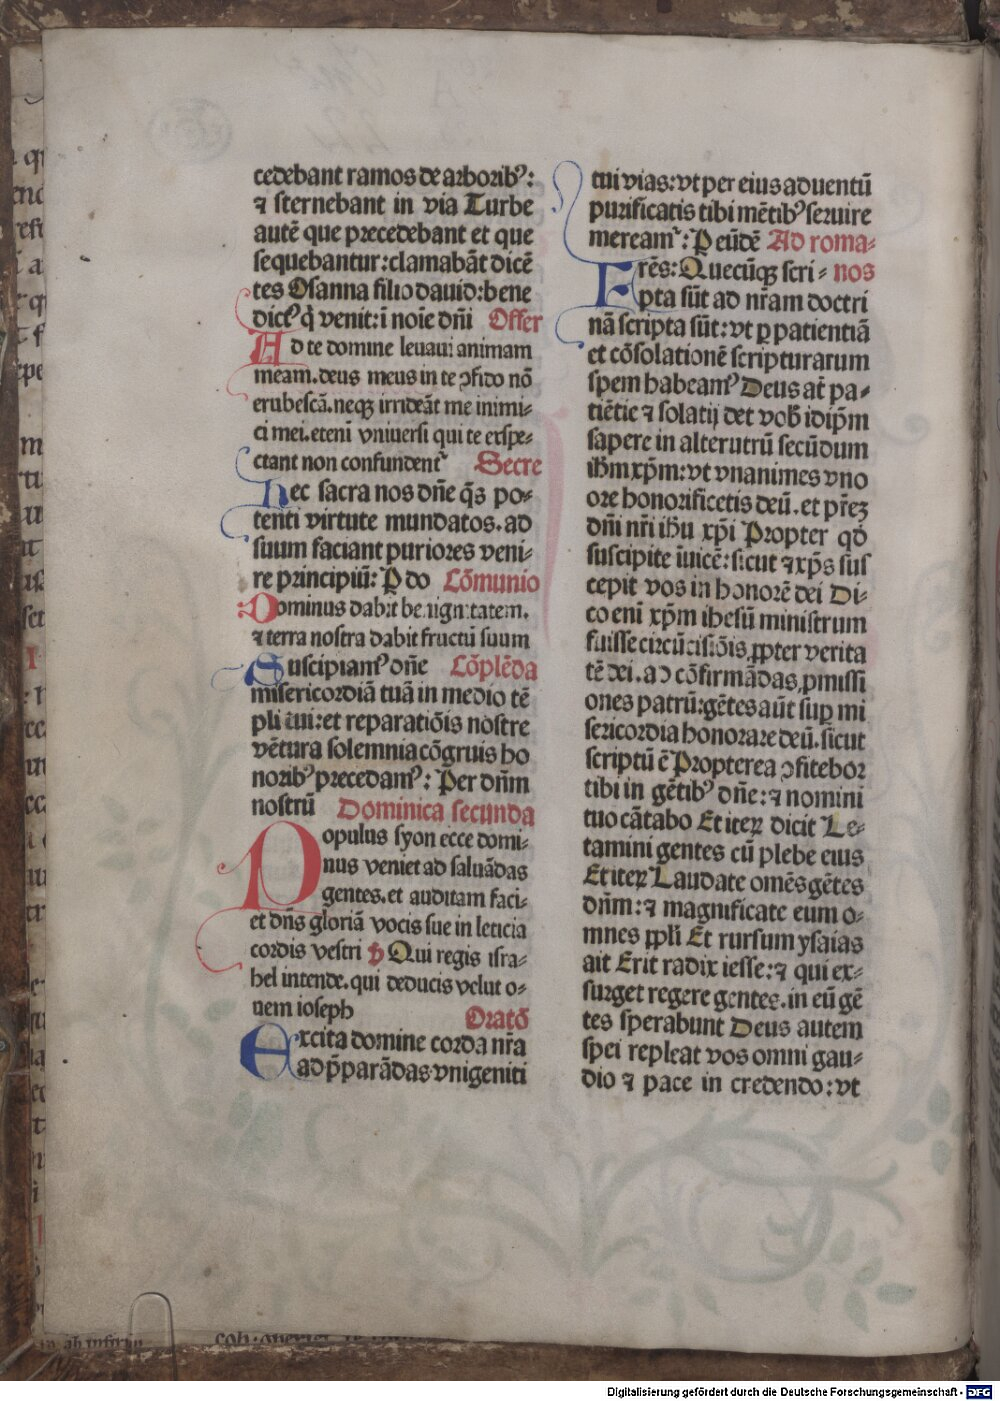 cedebant ramos de arboribꝰ:
⁊ sternebant in via Turbe
autē que precedebant et que
sequebantur: clamabāt dicē
tes Osanna filio dauid: bene
dictꝰ q̄ venit: ī noīe dn̄i Offer
Ad te domine leuaui animam
meam. deus meus in te ꝯfido nō
erubescā. neqꝫ irrideāt me inimi-
ci mei. eteni vniuersi qui te exspe-
ctant non confundent᷑ Secre
Hec sacra nos dn̄e q̄s po-
tenti virtute mundatos. ad
suum faciant puriores veni-
re principiū: P do Cōmunio
Dominus dabit benignitatem.
⁊ terra nostra dabit fructū suum
Suscipiamꝰ dn̄e Cōplēda
misericordiā tuā in medio tē
pli tui: et reparatiōis nostre
vētura solemnia cōgruis ho
noribꝰ precedamꝰ: Per dn̄m
nostrū Dominica secunda
Populus syon ecce domi-
nus veniet ad saluādas
gentes. et auditam faci-
et dn̄s gloriā vocis sue in leticia
cordis vestri p̄ Qui regis isra-
hel intende. qui deducis velut o-
uem ioseph Oratō
Excita domine corda nr̄a
ad p̄parādas vnigeniti
tui vias: vt per eius aduentū
purificatis tibi mētibꝰ seruire
meream᷑: P eūdē Ad roma-
Frēs: Quecūqꝫ scri- nos
pta sūt ad nr̄am doctri
nā scripta sūt: vt ꝑ patientiā
et cōsolationē scripturarum
spem habeamꝰ Deus at̄ pa-
tiētie ⁊ solatij det vob̄ idip̄m
sapere in alterutrū secūdum
ihm̄ xp̄m: vt vnanimes vno
ore honorificetis deū. et pr̄eꝫ
dn̄i nr̄i ihū xp̄i Propter qd̄
suscipite īuicē: sicut ⁊ xp̄s sus
cepit vos in honorē dei Di-
co enī xp̄m ihesū ministrum
fuisse circūcisiōis ꝓpter verita
tē dei. ad cōfirmādas ꝓmissi
ones patrū: gētes aūt suꝑ mi
sericordia honorare deū. sicut
scriptū ē Propterea ꝯfitebor
tibi in gētibꝰ dn̄e: ⁊ nomini
tuo cātabo Et iteꝝ dicit Le-
tamini gentes cū plebe eius
Et iteꝝ Laudate omēs gētes
dn̄m: ⁊ magnificate eum o-
mnes ppl̄i Et rursum ysaias
ait Erit radix iesse: ⁊ qui ex-
surget regere gentes. in eū gē
tes sperabunt Deus autem
spei repleat vos omni gau-
dio ⁊ pace in credendo: vt
Digitalisierung gefördert durch die Deutsche Forschungsgemeinschaft - DFG